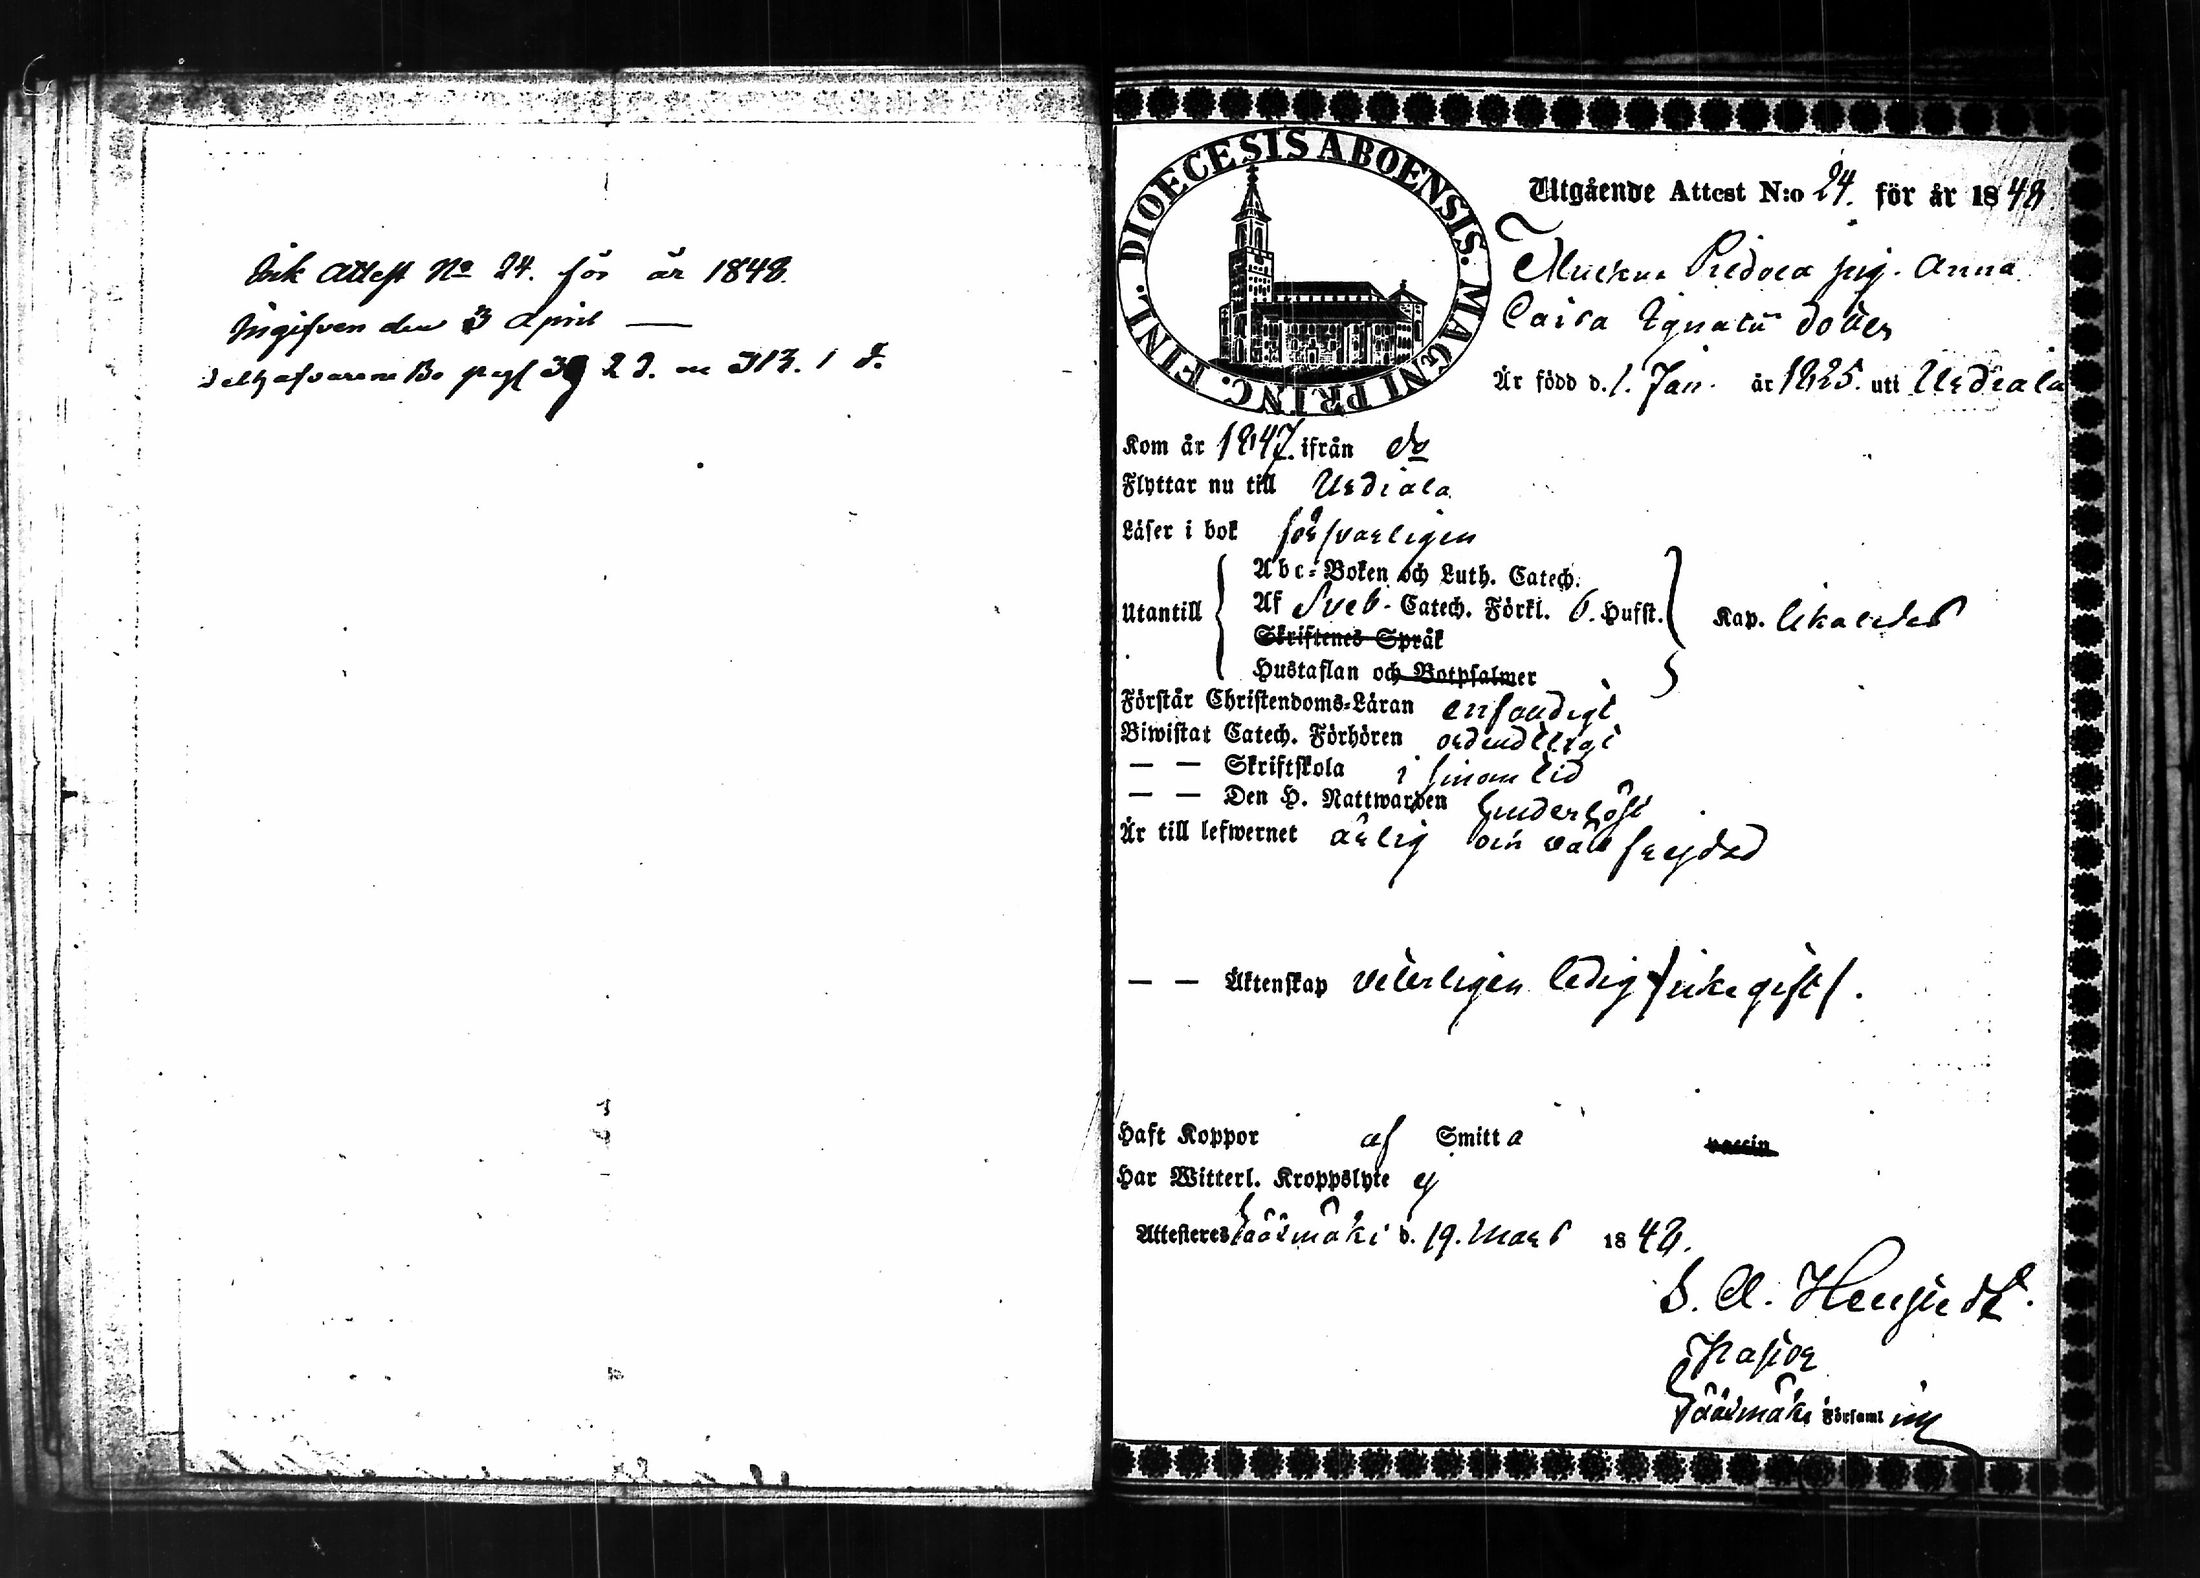 Ink Attest No 24. för år 1848.
Ingifven den 3 April
pag 39
DIOECESIS ABOENSIS. MAGNI PRINC. FINL.
Utgående Attest N:o 24. för år 1848.
pig. Anna
Caisa Ignatii dotter
Är född d. 1. Jan. år 1825. uti Urdiala
Kom år 1847. ifrån do
Flyttar nu till Urdiala
Läser i bok försvarligen
Abc-Boken och Luth. Catech.
Utantill Af Sveb. Catech. Förkl. 6. Hufst. Kap. likaledes
Skriftenes Språk
Hustaflan och Botpsalmer
Förstår Christendoms-Läran enfaldigt
Biwistat Catech. Förhören ordentligt
— — Skriftskola i sinom tid
— — Den H. Nattwarden sinderhöst
Är till lefwernet ärlig och väl frejdad
— — Äktenskap veterligen ledig /icke gift/.
Haft Koppor af Smitta vaccin
Har Witterl. Kroppslyte ej
Attesteras Sääxmäki d. 19. Mars 1848.
Pastor
Sääxmäki Församl ing